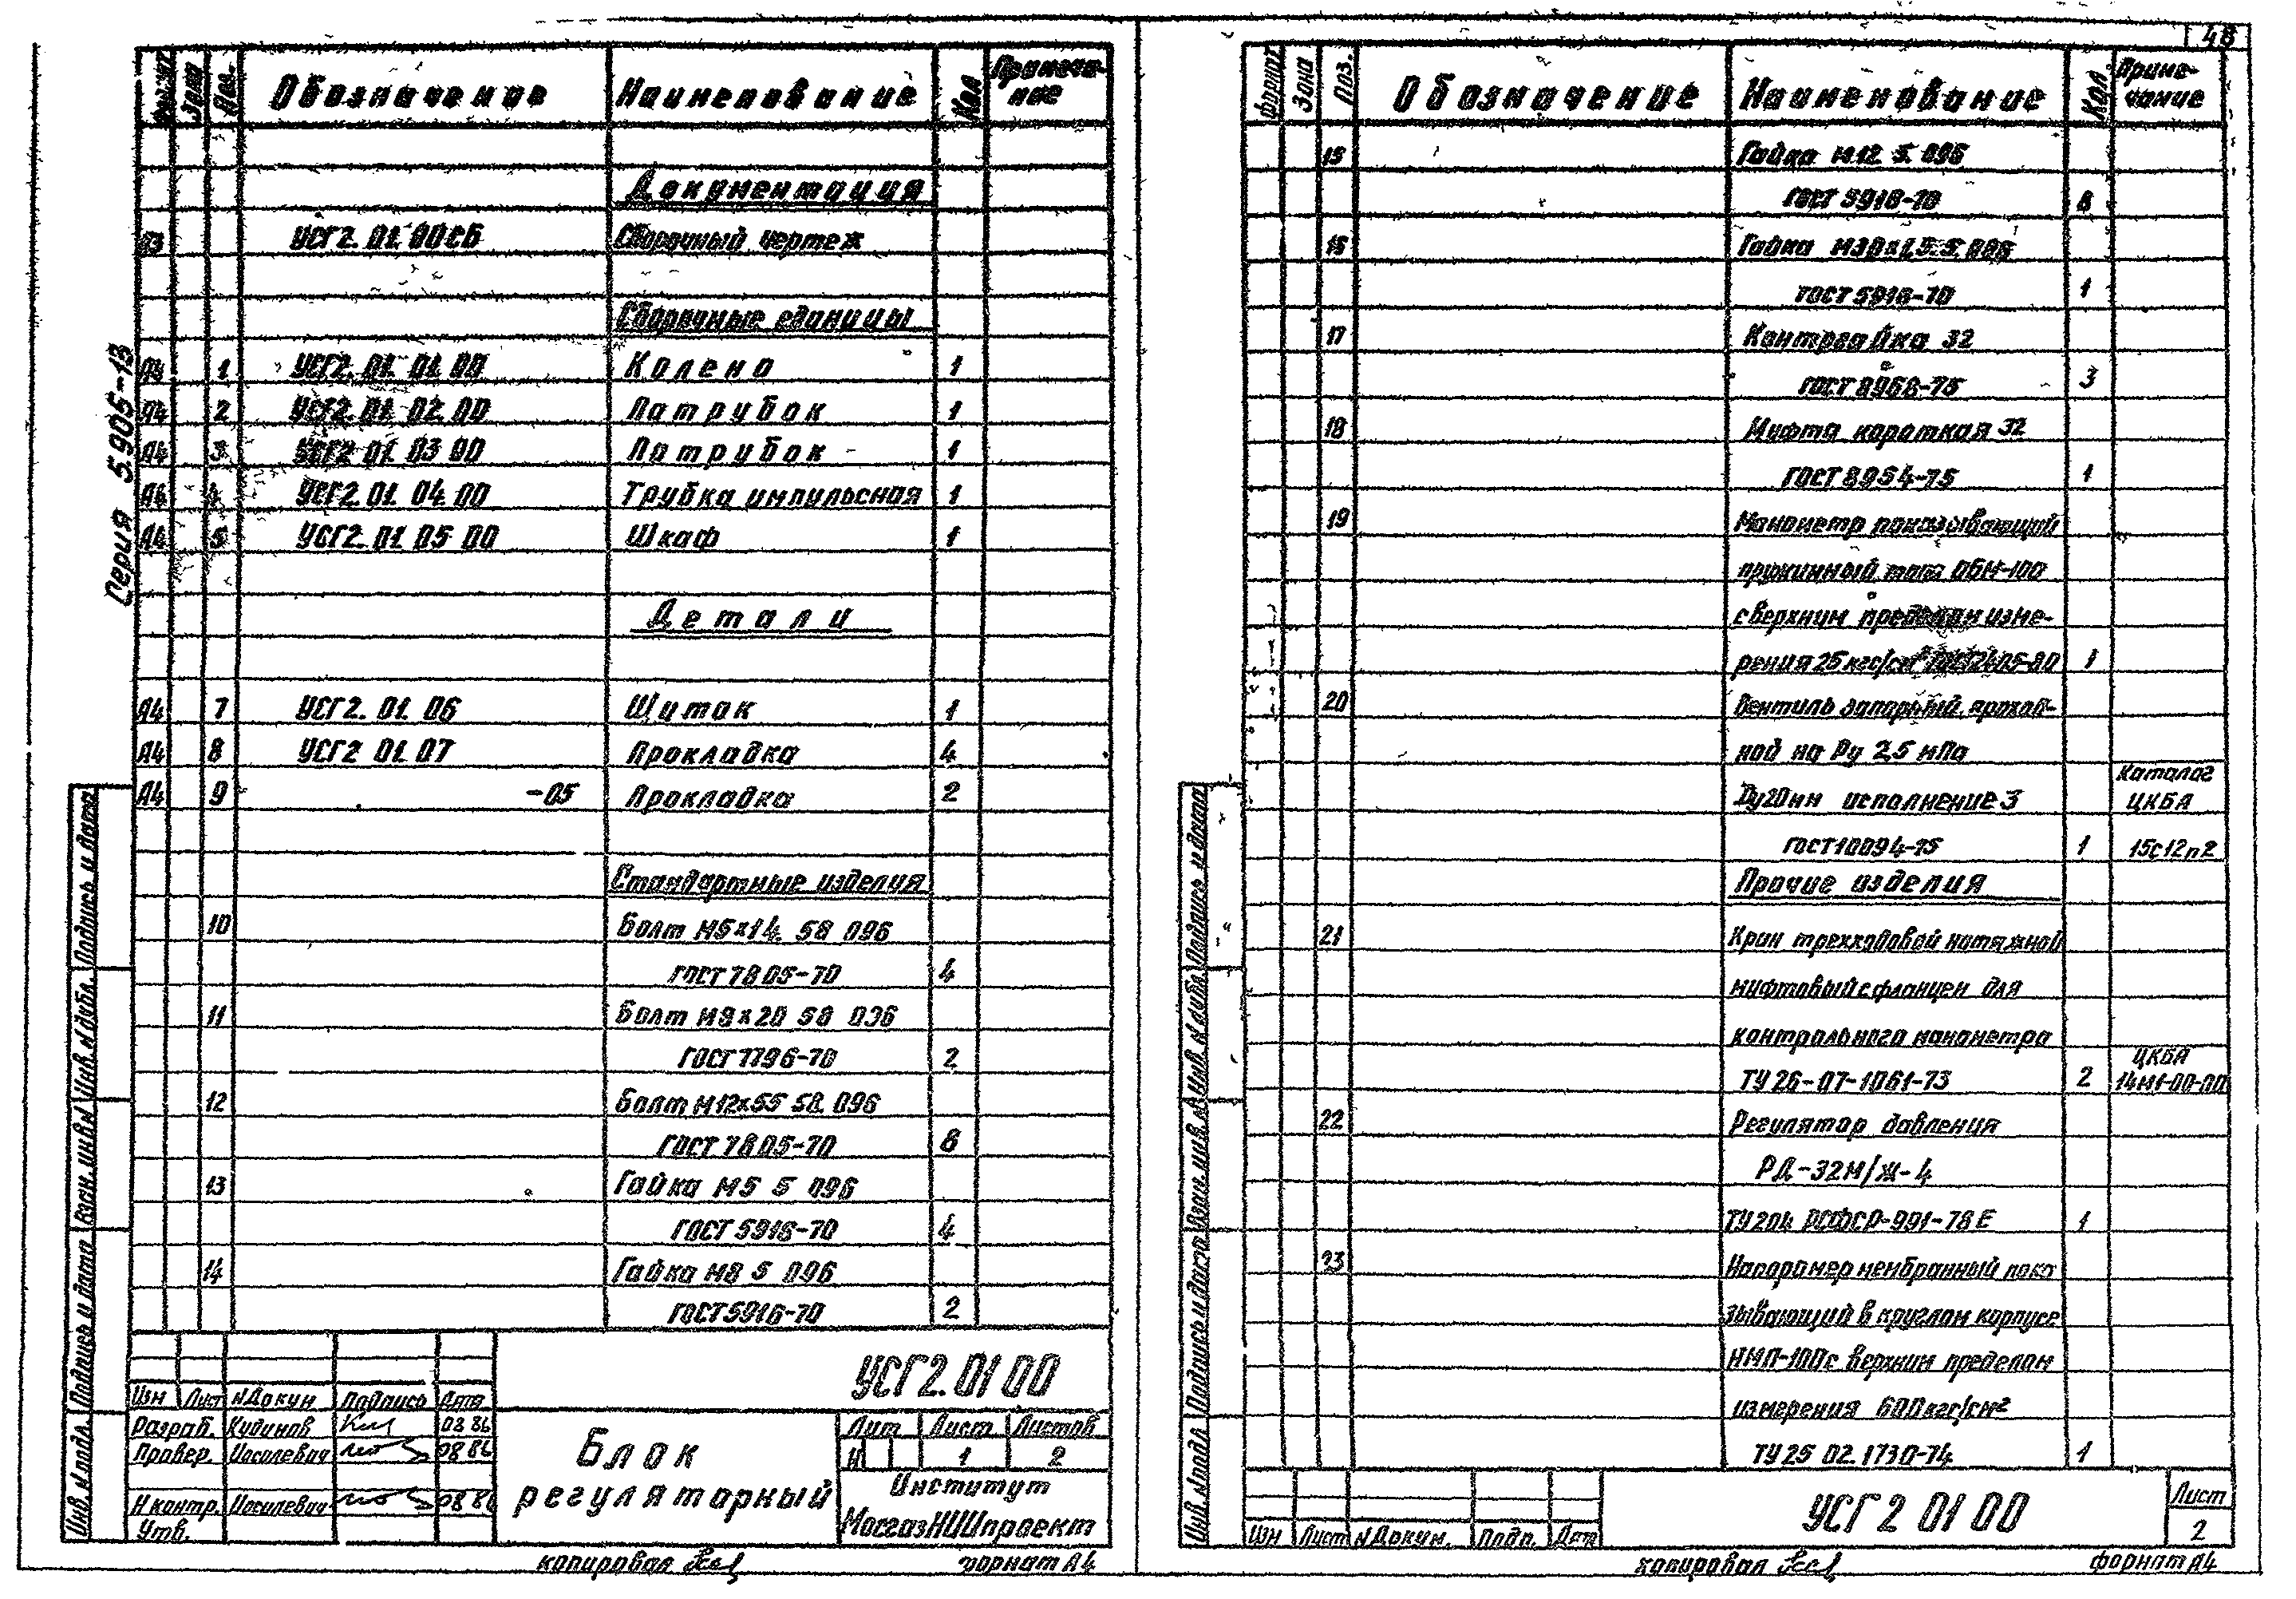 48
Серия 5.905-13
Формат Зона Поз. Обозначение Наименование Кол Примеча-
ние
Документация
А3 УСГ2. 01. 00 СБ Сборочный чертеж
Сборочные единицы
А4 1 УСГ2. 01. 01. 00 Колено 1
А4 2 УСГ2. 01. 02. 00 Патрубок 1
А4 3 УСГ2 01. 03 00 Патрубок 1
А4 4 УСГ2. 01. 04. 00 Трубка импульсная 1
А4 5 УСГ2. 01. 05 00 Шкаф 1
Детали
А4 7 УСГ2. 01. 06 Щиток 1
А4 8 УСГ2 01. 07 Прокладка 4
А4 9 -05 Прокладка 2
Стандартные изделия
10 Болт М5х14. 58 096
ГОСТ 7805-70 4
11 Болт М8х20 58 096
ГОСТ 7796-70 2
12 Болт М12х55 58. 096
ГОСТ 7805-70 8
13 Гайка М5 5 096
ГОСТ 5916-70 4
14 Гайка М8 5 096
ГОСТ 5916-70 2
Подпись и дата
Инв. № дубл.
Взам. инв. №
Подпись и дата
Инв. № подл.
УСГ2. 01 00
Изм Лист № Докум Подпись Дата
Разраб. Кудинов 08 86
Провер. 08 86
Н контр. 08 86
Утв.
Блок
регуляторный
Лит Лист Листов
И 1 2
Институт
МосгазНИИпроект
копировал формат А4
Формат Зона Поз. Обозначение Наименование Кол. Приме-
чание
15 Гайка М12. 5. 096
ГОСТ 5916-70 8
16 Гайка М30х1,5. 5. 096
ГОСТ 5916-70 1
17 Контргайка 32
ГОСТ 8968-75 3
18 Муфта короткая 32
ГОСТ 8954-75 1
19 Манометр показывающий
пружинный типа ОБМ-100
с верхним пределом изме-
рения 25 кгс/см² ГОСТ 2405-80 1
20 Вентиль запорный проход-
ной на Ру 2,5 мПа
Ду20мм исполнение 3 Каталог
ЦКБА
ГОСТ 10094-75 1 15с12п2
Прочие изделия
21 Кран трехходовой натяжной
муфтовый с фланцем для
контрольного манометра
ТУ 26-07-1061-73 2 ЦКБА
14М1-00-00
22 Регулятор давления
РД-32М/Ж-4
ТУ204 РСФСР-991-78Е 1
23 Напоромер мембранный пока
зывающий в круглом корпусе
НМП-100 с верхним пределом
измерения 600 кгс/см²
ТУ 25 02. 1730-74 1
Подпись и дата
Инв. № дубл.
Взам. инв. №
Подпись и дата
Инв. № подл.
Изм Лист № Докум. Подп. Дата
УСГ 2 01 00
Лист
2
копировал формат А4